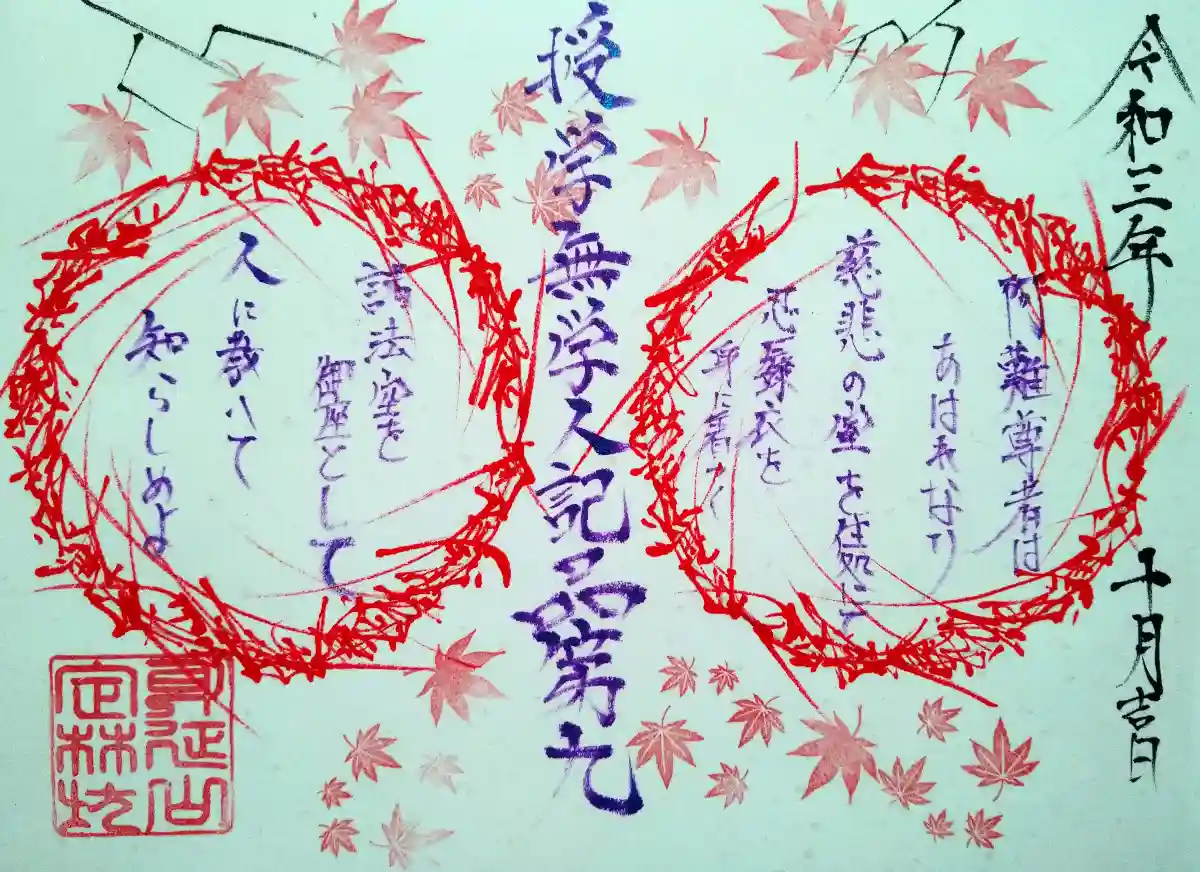 令和三年 十月吉日
阿難尊者は
あはれなり
慈悲の室を住処に
忍辱衣を
身に着て
授学無学人記品第九
諸法空を
御座として
人に教へて
知らしめよ
身延山
定林坊